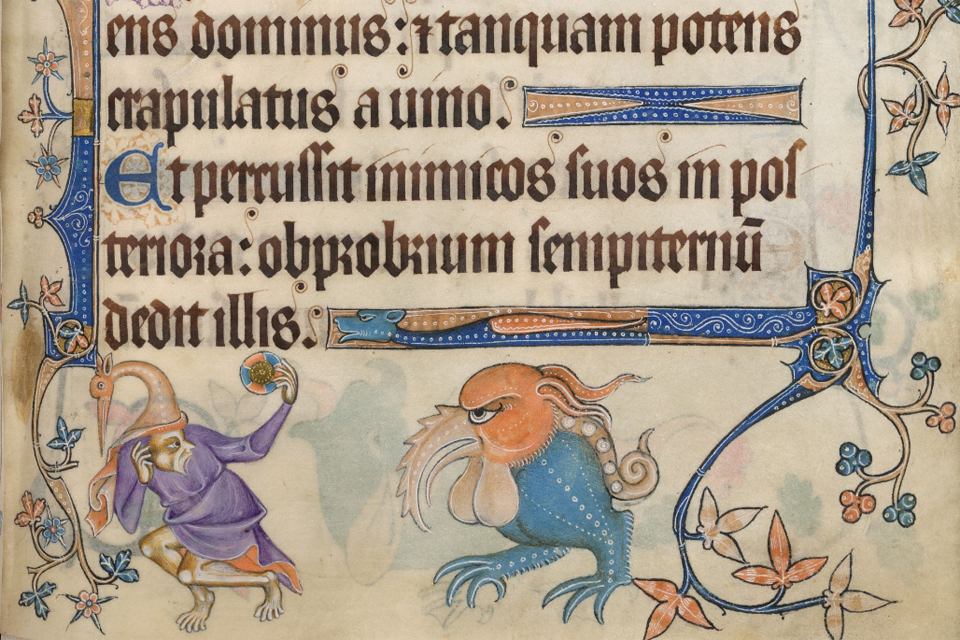 ens dominus: ⁊ tanquam potens
crapulatus a uino.
Et percussit inimicos suos in pos
teriora: obprobrium sempiternū
dedit illis.